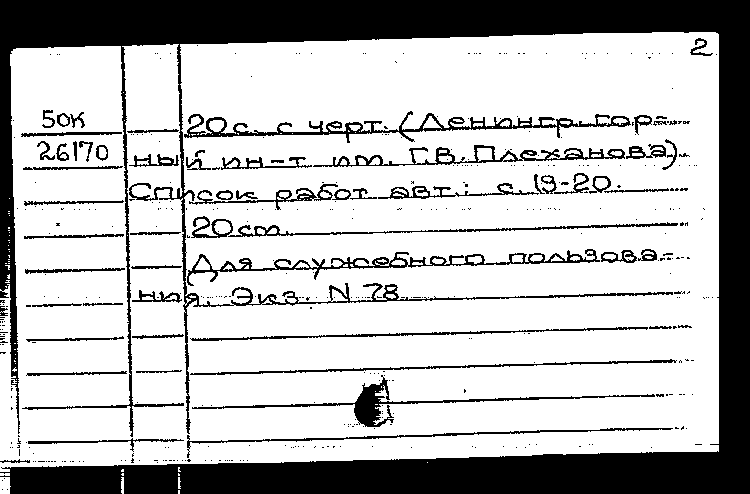 2
50К 20с. с черт. (Ленингр. гор-
26170 ный ин-т им. Г.В. Плеханова).
Список работ авт.: с. 19-20.
20 см.
Для служебного пользова-
ния. Экз. N 78